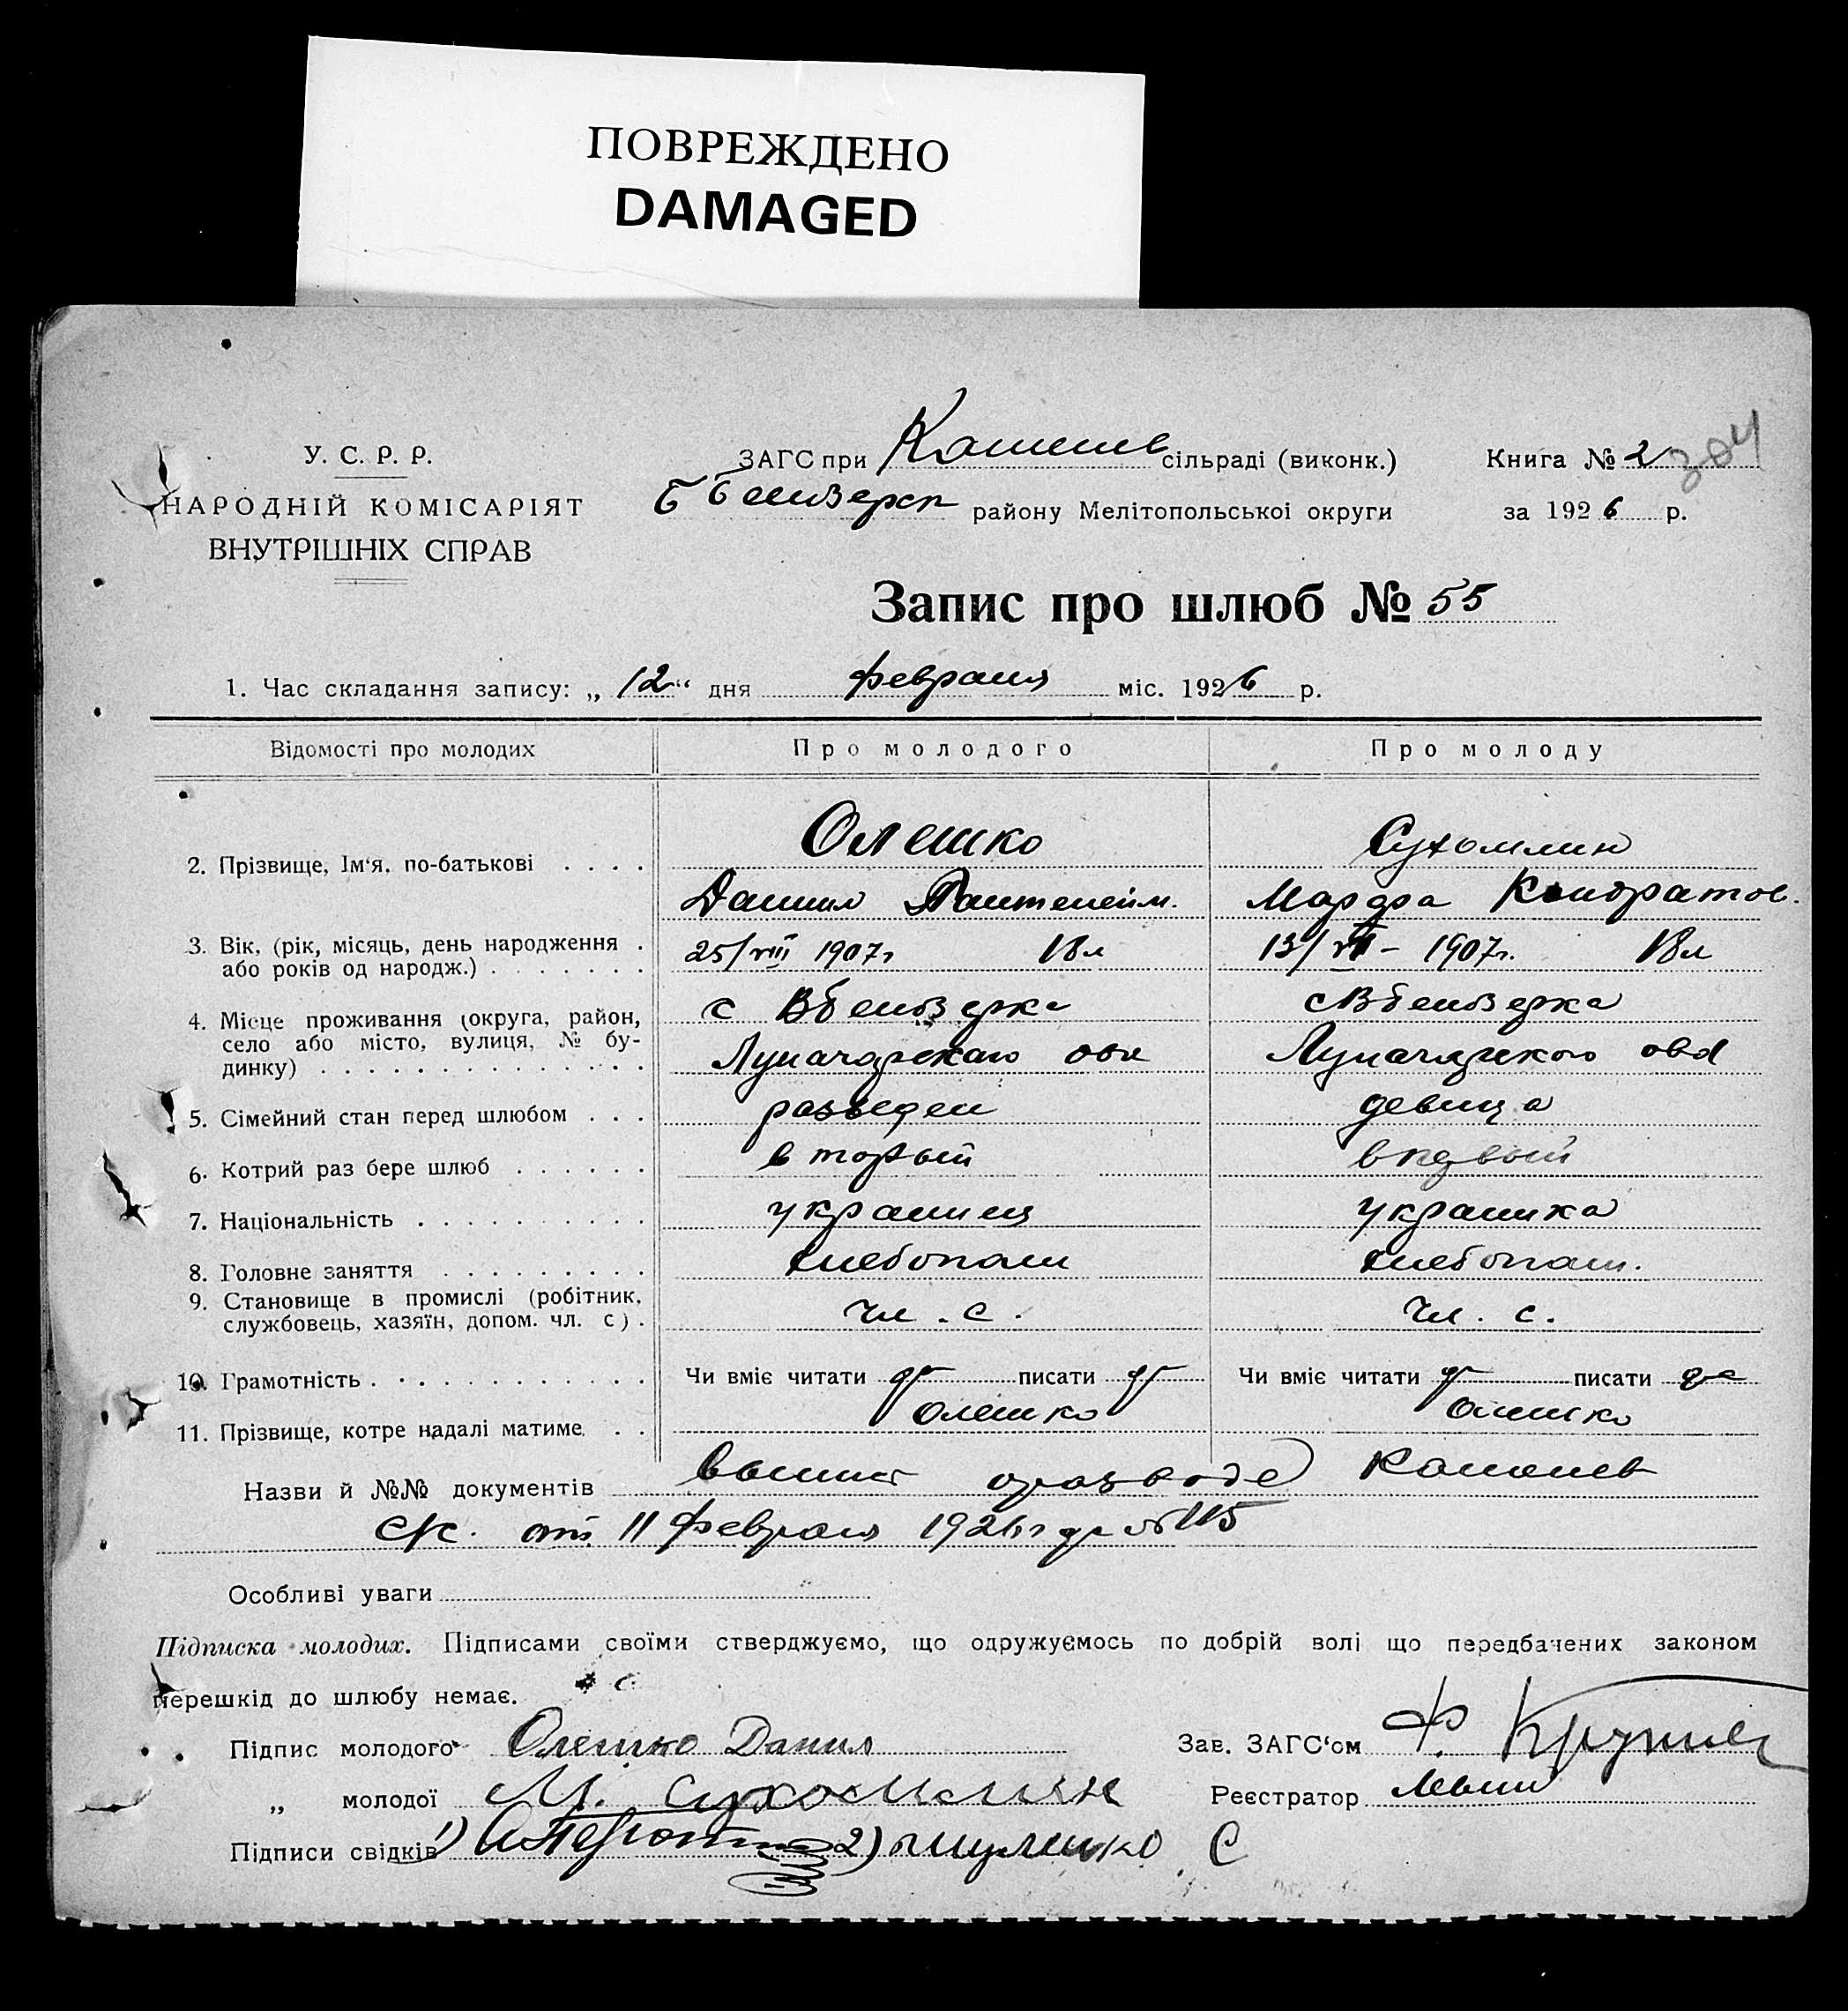 ПОВРЕЖДЕНО
DAMAGED
У. С. Р. Р.
НАРОДНІЙ КОМІСАРІЯТ
ВНУТРІШНІХ СПРАВ
ЗАГС при сільраді (виконк.)
району Мелітопольської округи
Книга № 2
304
за 1926 р.
Запис про шлюб № 55
1. Час складання запису: „ 12 “ дня февраля міс. 1926 р.
Відомості про молодих Про молодого Про молоду
2. Прізвище, Ім‘я, по-батькові . . . . Олешко Сухомлин
Данил Пантелейм. Марфа Кондратов.
3. Вік, (рік, місяць, день народження . 25/VIII 1907г 18л 13/ 1907г. 18л
або років од народж.) . . . . . . .
4. Місце проживання (округа, район, с с
село або місто, вулиця, № бу-
динку) . . . . . . . . . . . . . . Луначарского Луначарского
5. Сімейний стан перед шлюбом . . . разведен девица
6. Котрий раз бере шлюб . . . . . . вторый первый
7. Національність . . . . . . . . . . украинец украинка
8. Головне заняття . . . . . . . . . хлебопаш хлебопаш.
9. Становище в промислі (робітник, чл. с. чл. с.
службовець, хазяїн, допом. чл. с) .
10. Грамотність . . . . . . . . . . . . Чи вміє читати да писати да Чи вміє читати да писати да
11. Прізвище, котре надалі матиме . . Олешко Олешко
Назви й №№ документів о разводе
от 11 февраля 1926г № 115
Особливі уваги
Підписка молодих. Підписами своїми стверджуємо, що одружуємось по добрій волі що передбачених законом
перешкід до шлюбу немає.
Підпис молодого Олешко Данил
Зав. ЗАГС‘ом Ф.
„ молодої М. Сухомлин
Реєстратор
Підписи свідків 1) 2) С